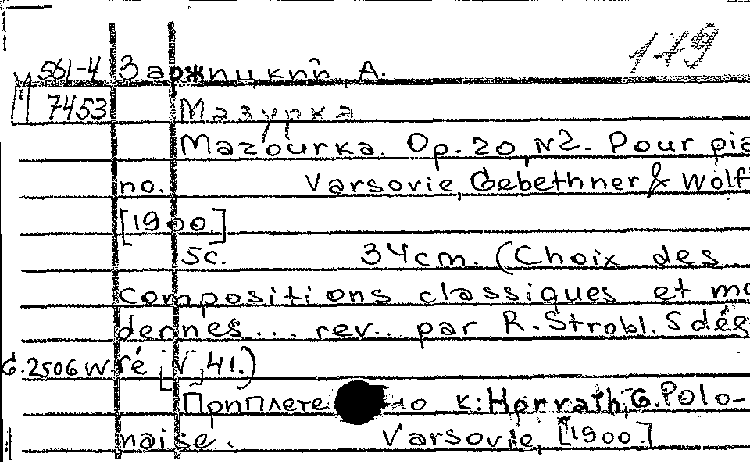 179
М 561-4 Заржицкий, А.
7453 Мазурка
Mazourka. Op. 20, N2. Pour pia
no. Varsovie, Gebethner & Wolff
[1900]
5c. 34cm. (Choix des
compositions classiques et mo
dernes... rev. par R. Strobl. Sdég
G.2506W. ré [N 41.)
Приплетено к: Horvath, G. Polo-
naise. Varsovie, [1900]